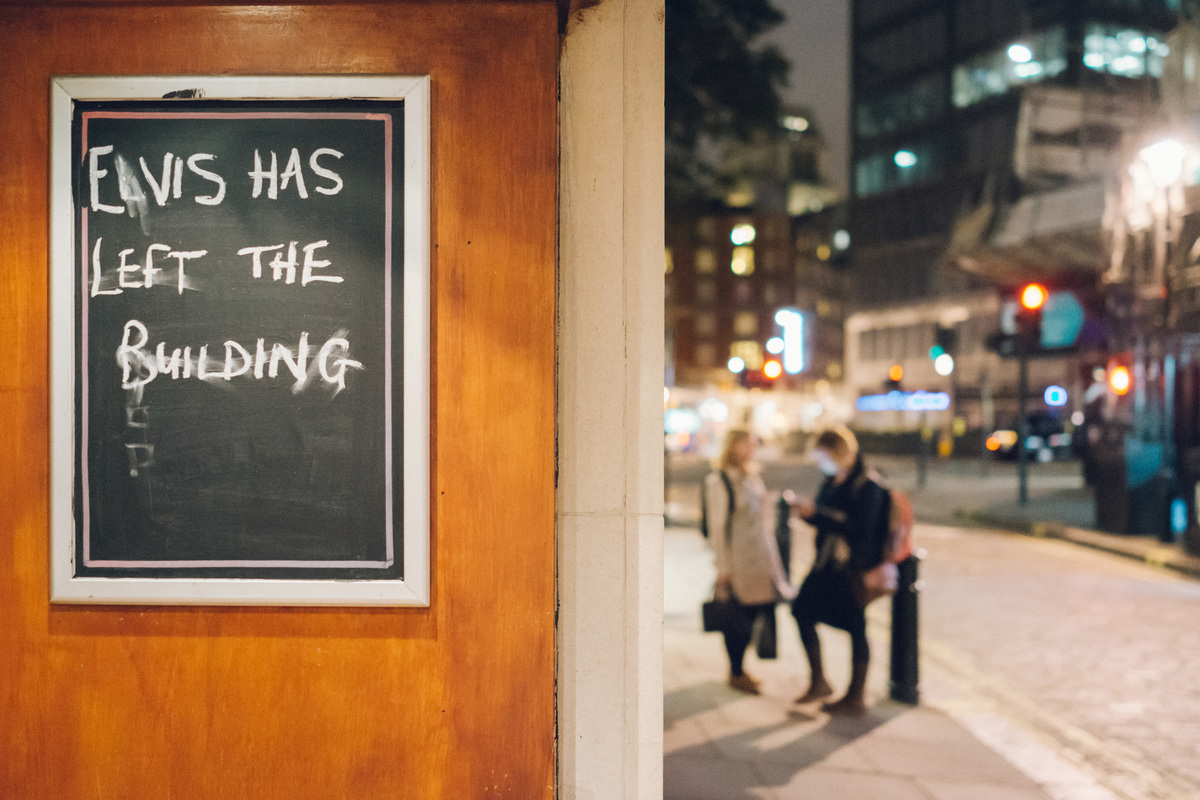 ELVIS HAS
LEFT THE
BUILDING